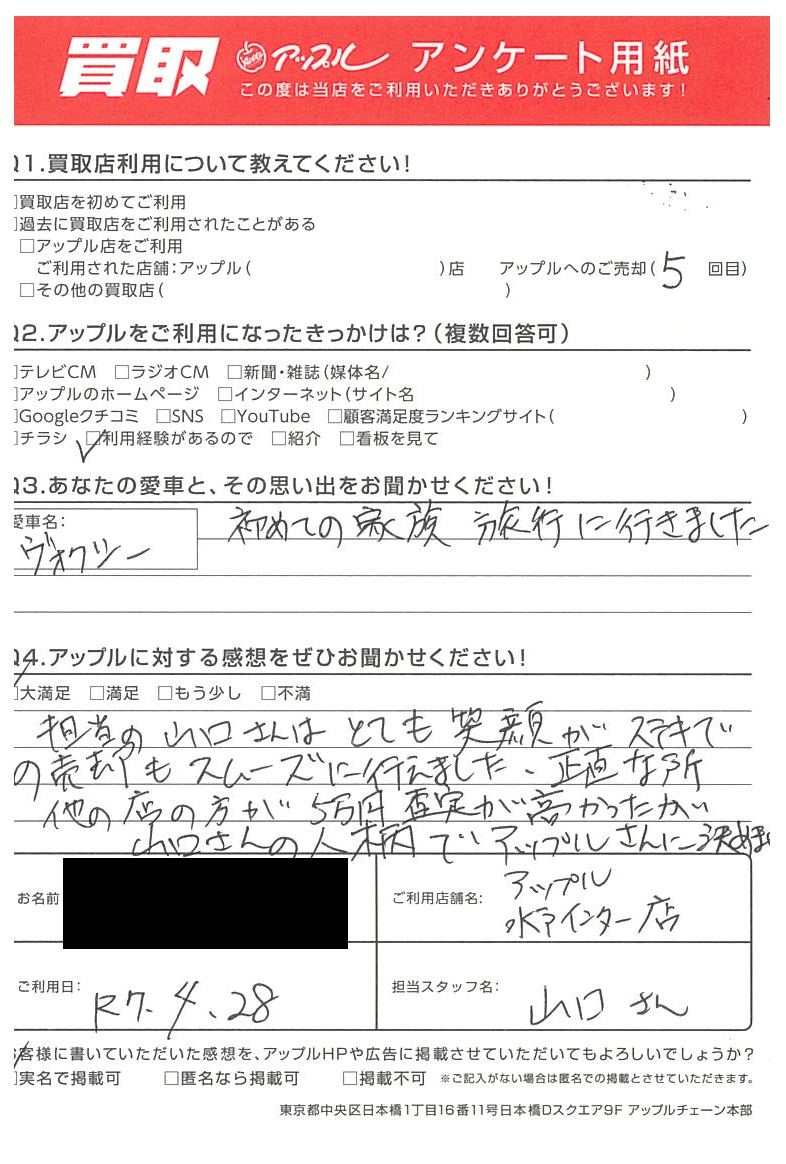 買取 アップル アンケート用紙
この度は当店をご利用いただきありがとうございます！
Q1.買取店利用について教えてください！
□買取店を初めてご利用
□過去に買取店をご利用されたことがある
□アップル店をご利用
ご利用された店舗：アップル（ ）店 アップルへのご売却（ 5 回目）
□その他の買取店（ ）
Q2.アップルをご利用になったきっかけは？（複数回答可）
□テレビCM □ラジオCM □新聞・雑誌（媒体名/ ）
□アップルのホームページ □インターネット（サイト名 ）
□Googleクチコミ □SNS □YouTube □顧客満足度ランキングサイト（ ）
□チラシ ☑利用経験があるので □紹介 □看板を見て
Q3.あなたの愛車と、その思い出をお聞かせください！
愛車名：
ヴォクシー
初めての家族旅行に行きました
Q4.アップルに対する感想をぜひお聞かせください！
☑大満足 □満足 □もう少し □不満
担当の山口さんはとても笑顔がステキで
の売却もスムーズに行えました、正直な所
他の店の方が5万円査定が高かったが
山口さんの人柄でアップルさんに決めま
お名前
ご利用店舗名：
アップル
水戸インター店
ご利用日：
R7.4.28
担当スタッフ名：
山口さん
お客様に書いていただいた感想を、アップルHPや広告に掲載させていただいてもよろしいでしょうか？
☑実名で掲載可 □匿名なら掲載可 □掲載不可 ※ご記入がない場合は匿名での掲載とさせていただきます。
東京都中央区日本橋1丁目16番11号日本橋Dスクエア9F アップルチェーン本部